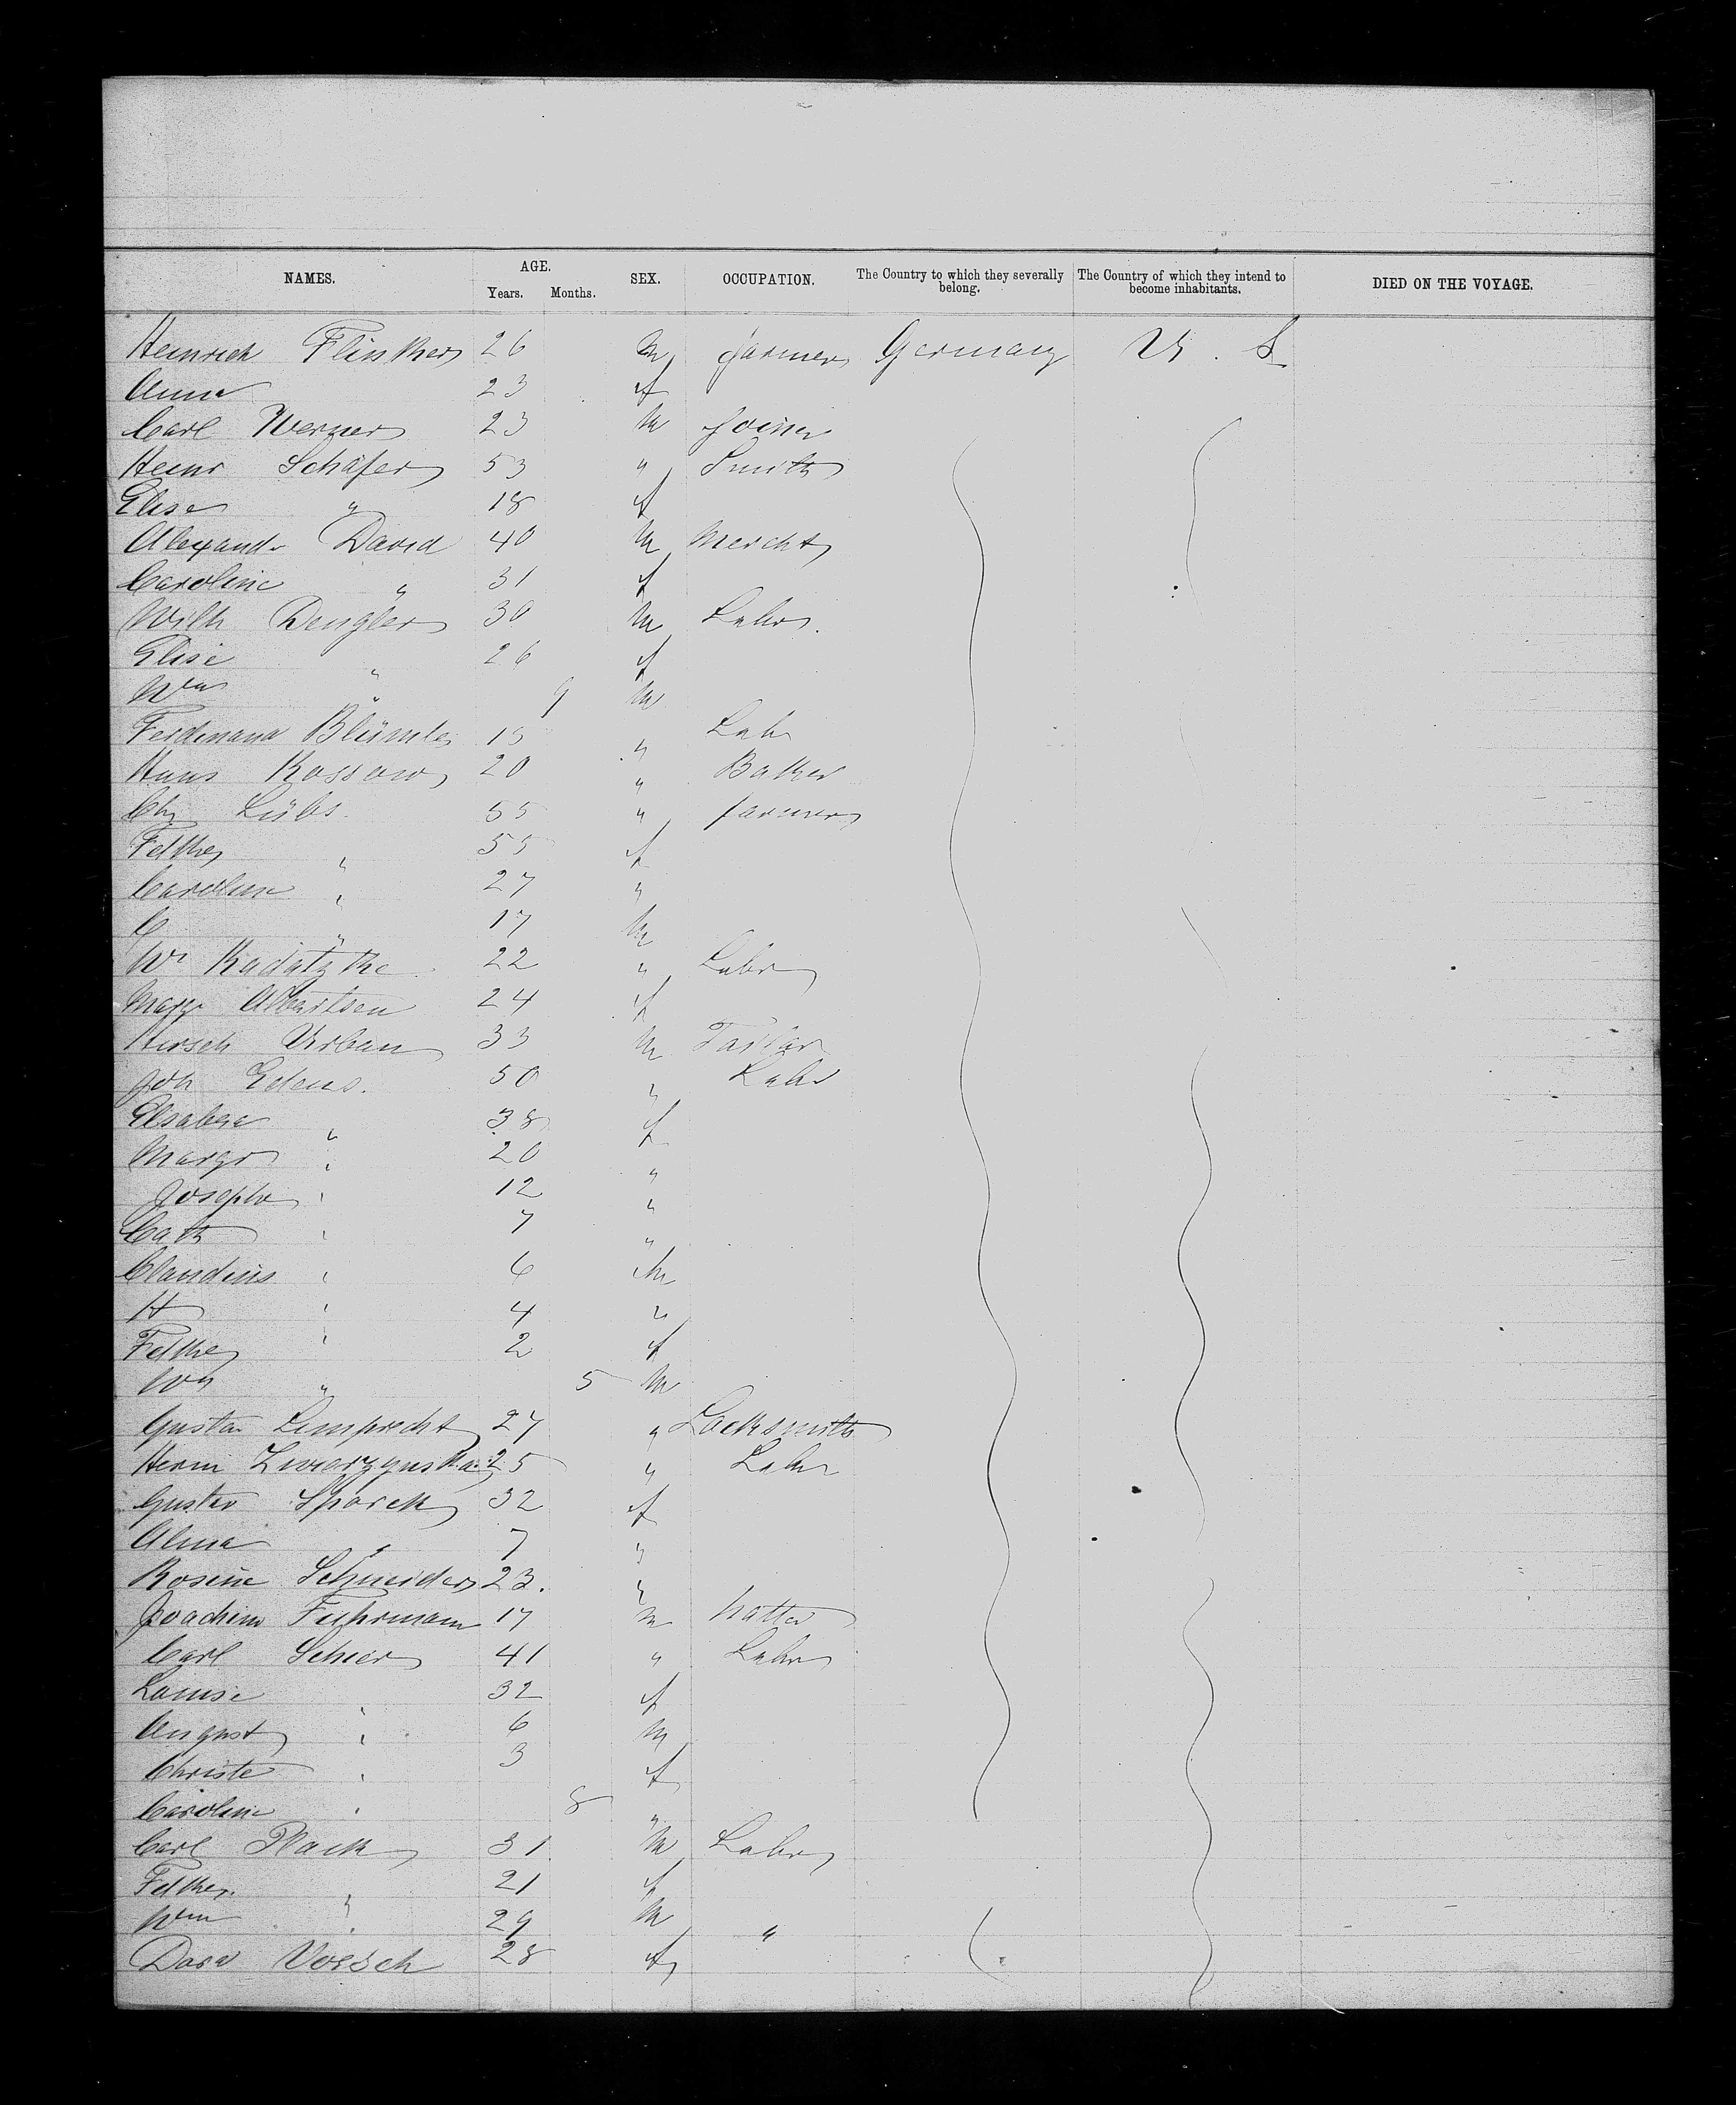 NAMES. AGE. Years. Months. SEX. OCCUPATION. The Country to which they severally belong. The Country of which they intend to become inhabitants. DIED ON THE VOYAGE.
Heinrich Flinker 26 m farmer Germany U. S
Anna 23 f
Carl Werner 23 m Joiner
Heinr Schäfer 53 " Smith
Elise " 18 f
Alexandr David 40 m Mercht
Caroline " 31 f
Wilh Dengler 30 m Labr.
Elise " 26 f
Wm " 9 m
Ferdinand Blümle 19 " Labr
Hans Kossow 20 " Baker
Ch Lübs. 55 " farmer
" 55 f
Caroline " 27 "
C " 17 m
Wm Kadatzke 22 " Labr
Margr Albertsen 24 f
Hirsch Urban 33 m Tailor
Joh Edens. 50 " Labr
Elsabea " 38 f
Margr " 20 "
Josepha " 12 "
Cath " 7 "
Claudius " 6 m
H " 4 "
" 2 f
Wm " 5 m
Gustav Limprecht 27 " Locksmith
Herm Zwarzynska 25 " Labr
Gustav Sparck 32 f
Alma " 7 "
Rosine Schneider 23. "
Joachim Fuhrmann 17 m hatter
Carl Schier 41 " Labr
Louise " 32 f
August " 6 m
Christe " 3 f
Caroline " 8 "
Carl Plack 31 m Labr
" 21 f
Wm " 29 m "
Dora Voesch 28 f